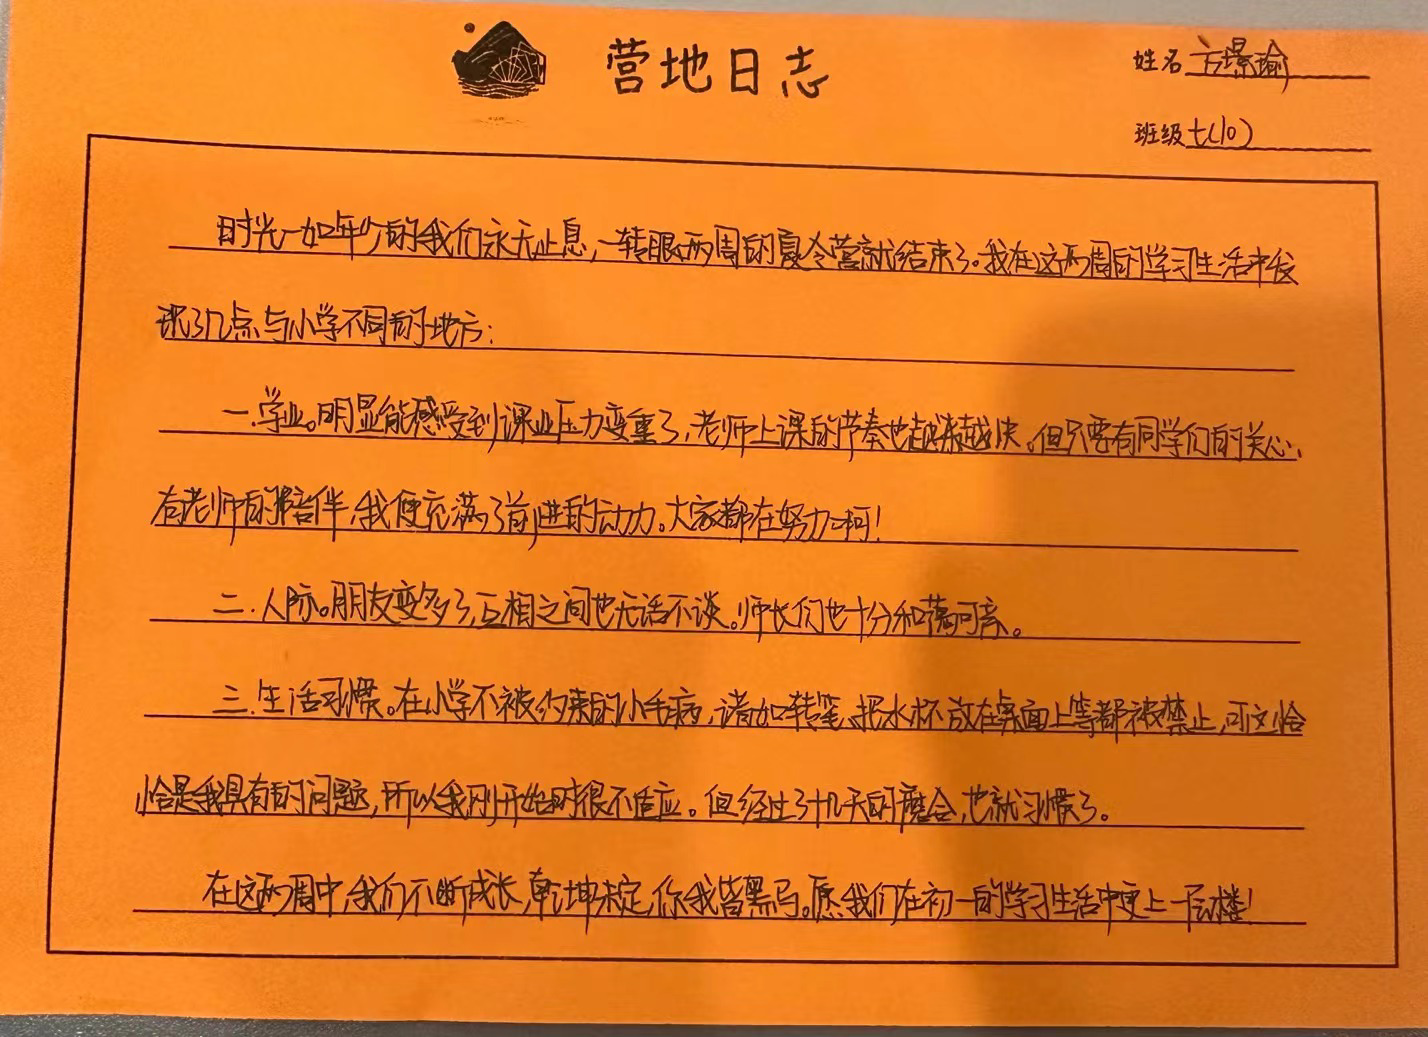 营地日志
姓名 方璟瑜
班级 七(10)
时光一如年少的我们永无止息,一转眼两周的夏令营就结束了。我在这两周的学习生活中发
现了几点与小学不同的地方:
一.学业。明显能感受到课业压力变重了,老师上课的节奏也越来越快。但只要有同学们的关心、
有老师的陪伴,我便充满了前进的动力。大家都在努力呵!
二.人际。朋友变多了,互相之间也无话不谈。师长们也十分和蔼可亲。
三.生活习惯。在小学不被约束的小毛病,诸如转笔、把水杯放在桌面上等都被禁止,可这恰
恰是我具有的问题,所以我刚开始时很不适应。但经过了十几天的磨合,也就习惯了。
在这两周中,我们不断成长,乾坤未定,你我皆黑马。愿我们在初一的学习生活中更上一层楼!